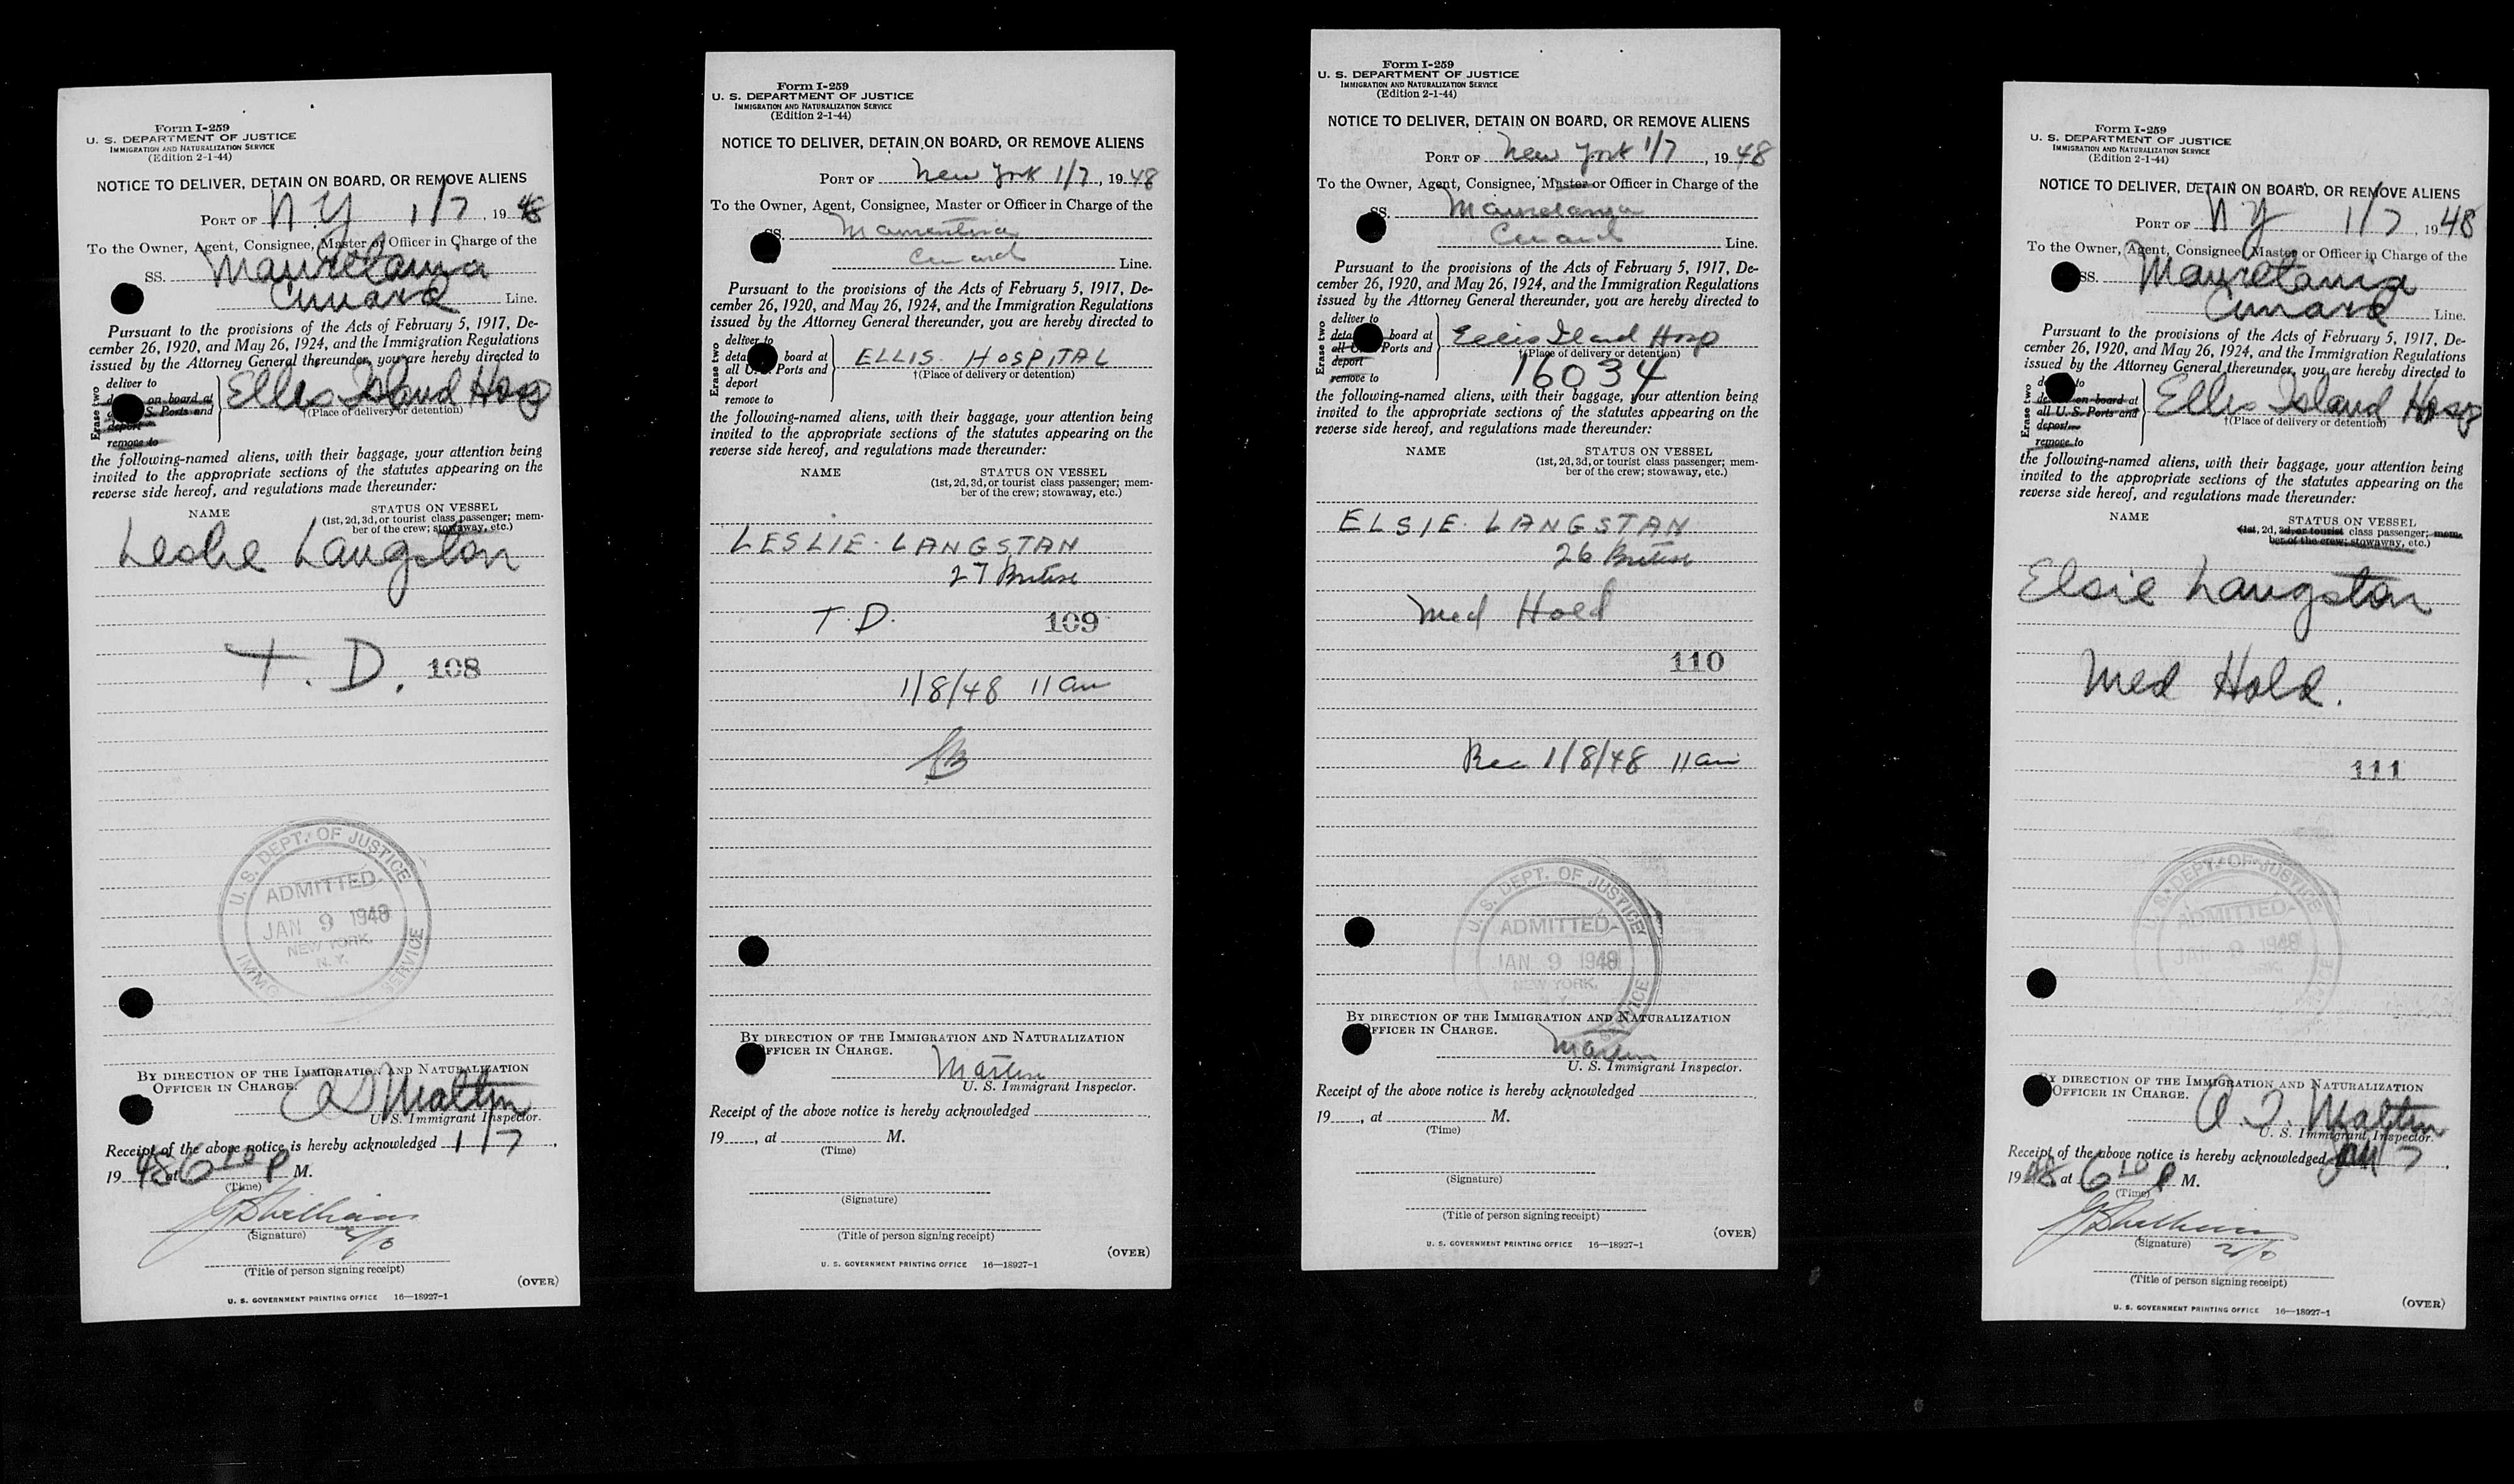 Form I-259
U. S. DEPARTMENT OF JUSTICE
IMMIGRATION AND NATURALIZATION SERVICE
(Edition 2-1-44)
NOTICE TO DELIVER, DETAIN ON BOARD, OR REMOVE ALIENS
PORT OF N.Y 1/7, 1948
To the Owner, Agent, Consignee, Master or Officer in Charge of the
SS. Mauretania
Cunard Line.
Pursuant to the provisions of the Acts of February 5, 1917, De-
cember 26, 1920, and May 26, 1924, and the Immigration Regulations
issued by the Attorney General thereunder, you are hereby directed to
Erase two
deliver to
on board at
S. Ports and
deport
remove to
Ellis Island Hosp
†(Place of delivery or detention)
the following-named aliens, with their baggage, your attention being
invited to the appropriate sections of the statutes appearing on the
reverse side hereof, and regulations made thereunder:
NAME STATUS ON VESSEL
(1st, 2d, 3d, or tourist class passenger; mem-
ber of the crew; stowaway, etc.)
Leslie Langston
T. D. 108
U. S. DEPT. OF JUSTICE
ADMITTED
JAN 9 1948
NEW YORK,
N. Y.
IMMG SERVICE
BY DIRECTION OF THE IMMIGRATION AND NATURALIZATION
OFFICER IN CHARGE.
U. S. Immigrant Inspector.
Receipt of the above notice is hereby acknowledged 1/7,
1948 at 6 10 P M.
(Time)
(Signature)
(Title of person signing receipt)
(OVER)
U. S. GOVERNMENT PRINTING OFFICE 16—18927-1
Form I-259
U. S. DEPARTMENT OF JUSTICE
IMMIGRATION AND NATURALIZATION SERVICE
(Edition 2-1-44)
NOTICE TO DELIVER, DETAIN ON BOARD, OR REMOVE ALIENS
PORT OF New York 1/7, 1948
To the Owner, Agent, Consignee, Master or Officer in Charge of the
SS.
Cunard Line.
Pursuant to the provisions of the Acts of February 5, 1917, De-
cember 26, 1920, and May 26, 1924, and the Immigration Regulations
issued by the Attorney General thereunder, you are hereby directed to
Erase two
deliver to
board at
all U. Ports and
deport
remove to
ELLIS HOSPITAL
†(Place of delivery or detention)
the following-named aliens, with their baggage, your attention being
invited to the appropriate sections of the statutes appearing on the
reverse side hereof, and regulations made thereunder:
NAME STATUS ON VESSEL
(1st, 2d, 3d, or tourist class passenger; mem-
ber of the crew; stowaway, etc.)
LESLIE LANGSTAN
27 British
T. D. 109
1/8/48 11 am
BY DIRECTION OF THE IMMIGRATION AND NATURALIZATION
OFFICER IN CHARGE.
Martin
U. S. Immigrant Inspector.
Receipt of the above notice is hereby acknowledged
19 , at M.
(Time)
(Signature)
(Title of person signing receipt)
(OVER)
U. S. GOVERNMENT PRINTING OFFICE 16—18927-1
Form I-259
U. S. DEPARTMENT OF JUSTICE
IMMIGRATION AND NATURALIZATION SERVICE
(Edition 2-1-44)
NOTICE TO DELIVER, DETAIN ON BOARD, OR REMOVE ALIENS
PORT OF New York 1/7, 1948
To the Owner, Agent, Consignee, Master or Officer in Charge of the
SS. Mauretania
Cunard Line.
Pursuant to the provisions of the Acts of February 5, 1917, De-
cember 26, 1920, and May 26, 1924, and the Immigration Regulations
issued by the Attorney General thereunder, you are hereby directed to
Erase two
deliver to
board at
all U. Ports and
deport
remove to
Ellis Island Hosp
†(Place of delivery or detention)
16034
the following-named aliens, with their baggage, your attention being
invited to the appropriate sections of the statutes appearing on the
reverse side hereof, and regulations made thereunder:
NAME STATUS ON VESSEL
(1st, 2d, 3d, or tourist class passenger; mem-
ber of the crew; stowaway, etc.)
ELSIE LANGSTAN
26 British
Med Hold
110
Rec 1/8/48 11am
U. S. DEPT. OF JUSTICE
ADMITTED
JAN 9 1948
NEW YORK,
N. Y.
BY DIRECTION OF THE IMMIGRATION AND NATURALIZATION
OFFICER IN CHARGE.
Martin
U. S. Immigrant Inspector.
Receipt of the above notice is hereby acknowledged
19 , at M.
(Time)
(Signature)
(Title of person signing receipt)
(OVER)
U. S. GOVERNMENT PRINTING OFFICE 16—18927-1
Form I-259
U. S. DEPARTMENT OF JUSTICE
IMMIGRATION AND NATURALIZATION SERVICE
(Edition 2-1-44)
NOTICE TO DELIVER, DETAIN ON BOARD, OR REMOVE ALIENS
PORT OF N Y 1/7, 1948
To the Owner, Agent, Consignee, Master or Officer in Charge of the
SS. Mauretania
Cunard Line.
Pursuant to the provisions of the Acts of February 5, 1917, De-
cember 26, 1920, and May 26, 1924, and the Immigration Regulations
issued by the Attorney General thereunder, you are hereby directed to
Erase two
to
on board at
all U. S. Ports and
deport
remove to
Ellis Island Hosp
†(Place of delivery or detention)
the following-named aliens, with their baggage, your attention being
invited to the appropriate sections of the statutes appearing on the
reverse side hereof, and regulations made thereunder:
NAME STATUS ON VESSEL
(1st, 2d, 3d, or tourist class passenger; mem-
ber of the crew; stowaway, etc.)
Elsie Langston
Med Hold.
111
U. S. DEPT. OF JUSTICE
ADMITTED
JAN 9 1948
BY DIRECTION OF THE IMMIGRATION AND NATURALIZATION
OFFICER IN CHARGE.
U. S. Immigrant Inspector.
Receipt of the above notice is hereby acknowledged Jan 7,
1948 at 6 10 P M.
(Time)
(Signature)
(Title of person signing receipt)
(OVER)
U. S. GOVERNMENT PRINTING OFFICE 16—18927-1